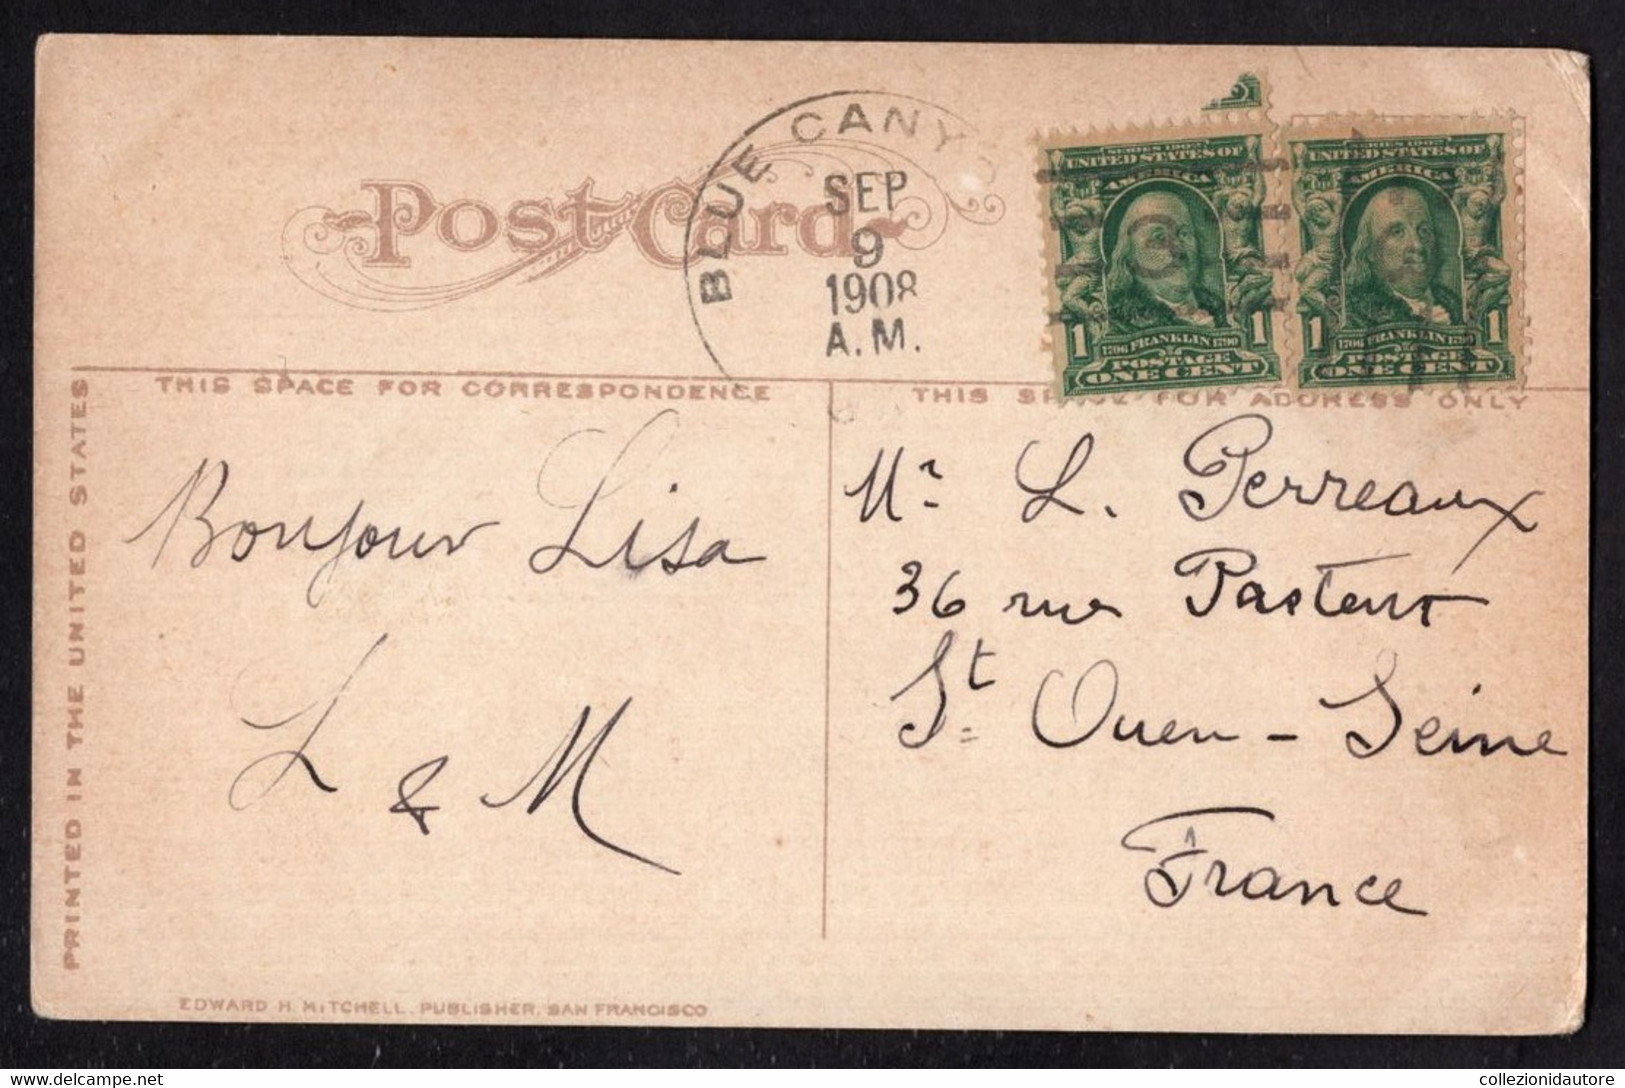 Post Card
BLUE CANY
SEP
9
1908
A.M.
SERIES 1902
UNITED STATES OF
AMERICA
1 1706 FRANKLIN 1790 1
POSTAGE
ONE CENT
SERIES 1902
UNITED STATES OF
AMERICA
1 1706 FRANKLIN 1790 1
POSTAGE
ONE CENT
THIS SPACE FOR CORRESPONDENCE
THIS SPACE FOR ADDRESS ONLY
PRINTED IN THE UNITED STATES
Bonjour Lisa
L & M
Mr. L. Perreaux
36 rue Pasteur
St Ouen - Seine
France
EDWARD H. MITCHELL, PUBLISHER, SAN FRANCISCO
collezionidautore